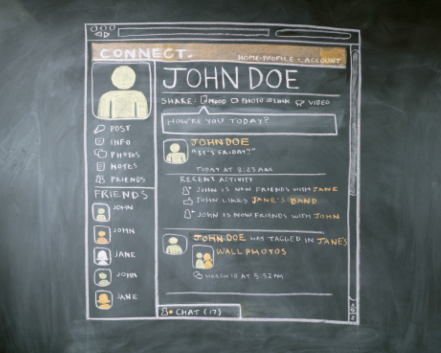 CONNECT.
HOME · PROFILE · ACCOUNT
JOHN DOE
SHARE: MOOD PHOTO LINK VIDEO
HOW'RE YOU TODAY?
POST
INFO
PHOTOS
NOTES
FRIENDS
FRIENDS
JOHN
JOHN
JANE
JOHN
JANE
JOHN DOE
"IT'S FRIDAY!"
TODAY AT 8:23AM
RECENT ACTIVITY
JOHN IS NEW FRIENDS WITH JANE
JOHN LIKES JANE'S BAND
JOHN IS NOW FRIENDS WITH JOHN
JOHN DOE WAS TAGGED IN JANE'S
WALL PHOTOS
AT 5:52PM
CHAT (17)